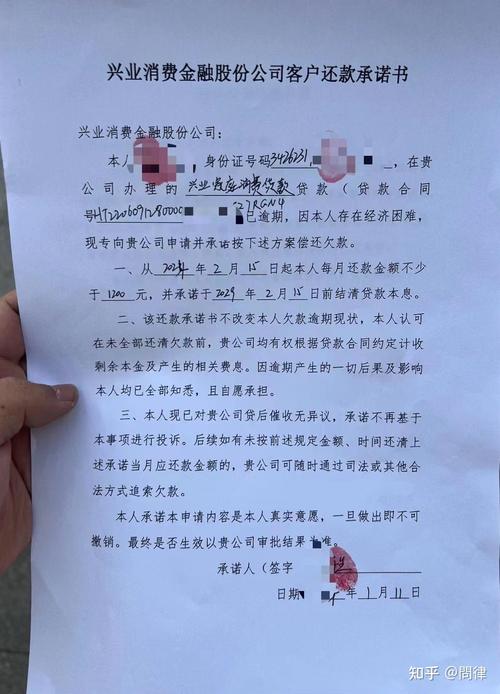 兴业消费金融股份公司客户还款承诺书
兴业消费金融股份公司:
本人 ，身份证号码3426231 ，在贵
公司办理的 兴业 消费贷款 贷款（贷款合同
号HT2206091280000 27RGN4已逾期，因本人存在经济困难，
现专向贵公司申请并承诺按下述方案偿还欠款。
一、从2024年2月15日起本人每月还款金额不少
于1200元，并承诺于2029年2月15日前结清贷款本息。
二、该还款承诺书不改变本人欠款逾期现状，本人认可
在未全部还清欠款前，贵公司均有权根据贷款合同约定计收
剩余本金及产生的相关费息。因逾期产生的一切后果及影响
本人均已全部知悉，且自愿承担。
三、本人现已对贵公司贷后催收无异议，承诺不再基于
本事项进行投诉。后续如有未按前述规定金额、时间还清上
述承诺当月应还款金额的，贵公司可随时通过司法或其他合
法方式追索欠款。
本人承诺本申请内容是本人真实意愿，一旦做出即不可
撤销。最终是否生效以贵公司审批结果为准。
承诺人（签字
日期 年1月11日
知乎 @問律